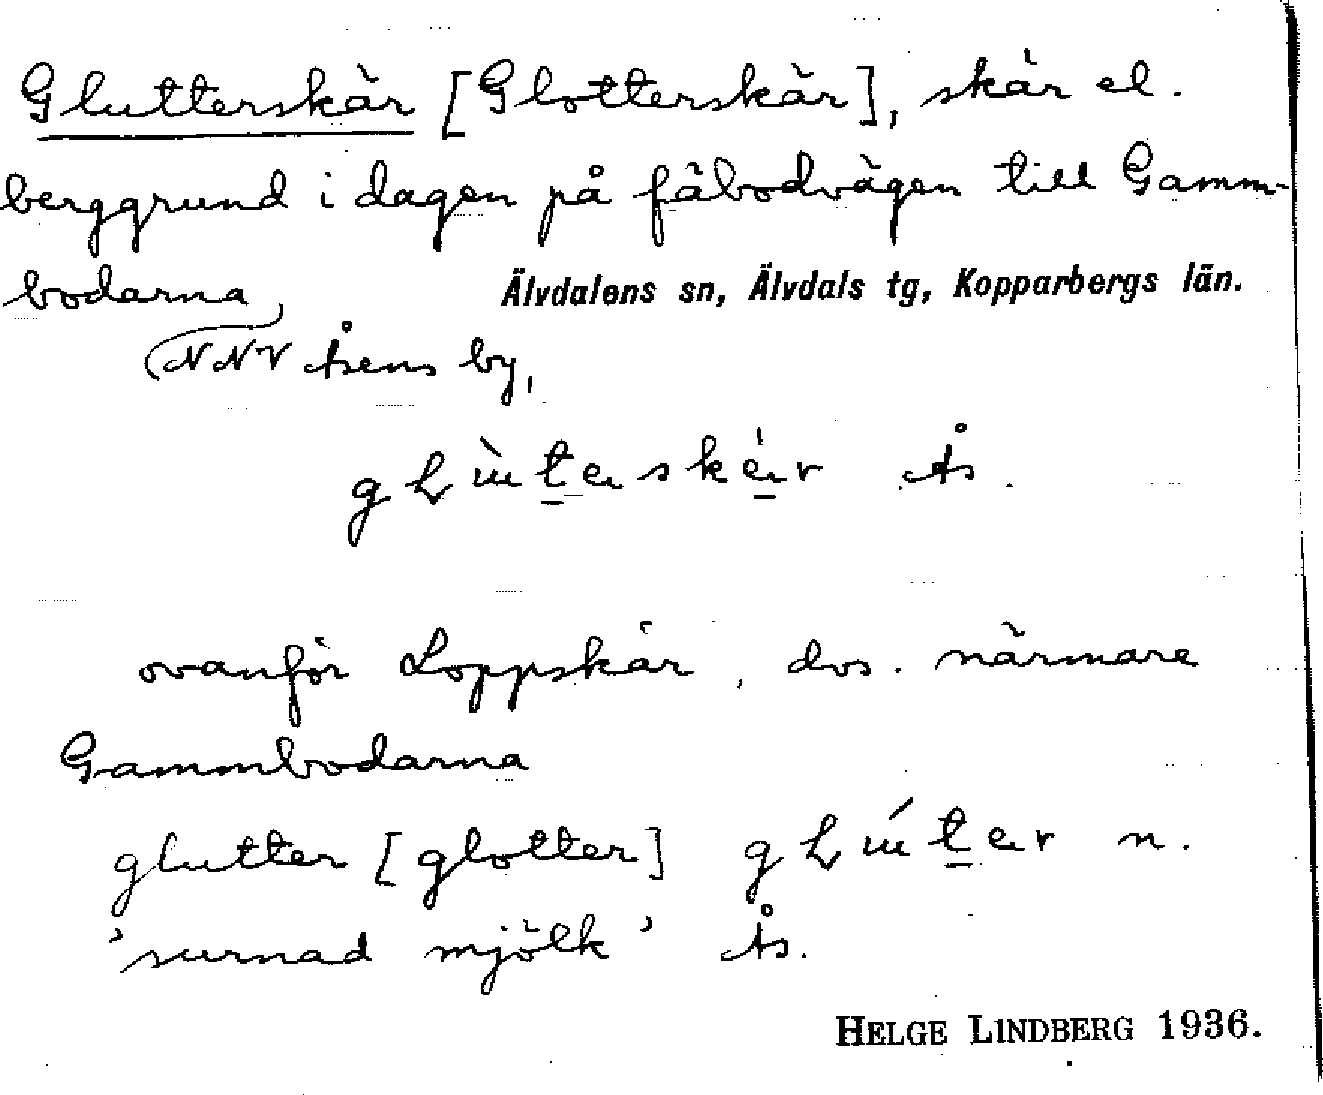 Glutterskär [Glotterskär], skär el.
berggrund i dagen på fäbodvägen till Gamm-
bodarna,
Älvdalens sn, Älvdals tg, Kopparbergs län.
NNV Åsens by,
ovanför Loppskär, dvs. närmare
Gammbodarna
glutter [glotter] n.
'surnad mjölk' Ås.
HELGE LINDBERG 1936.